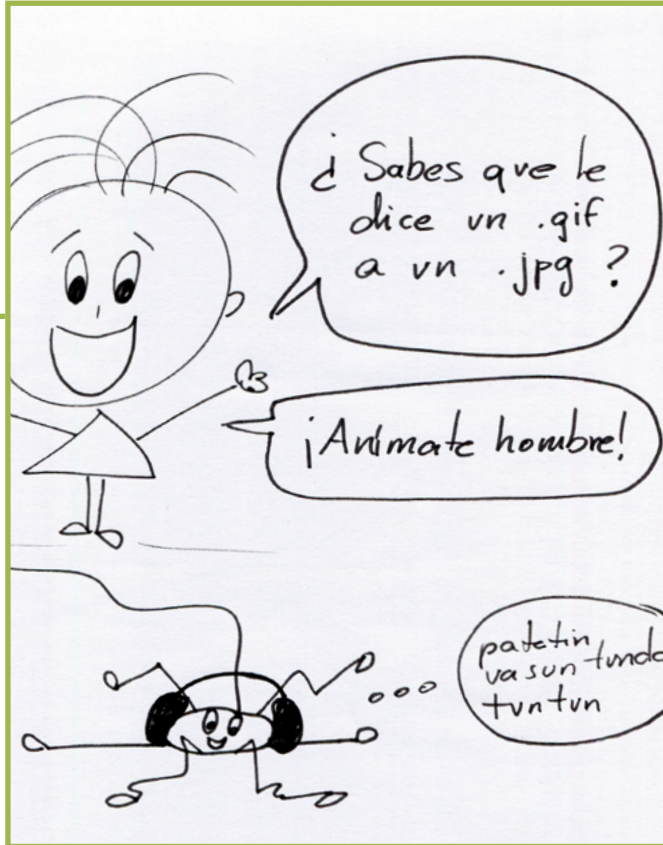 ¿Sabes que le
dice un .gif
a un .jpg?
¡Animate hombre!
patetin
vasun tunda
tuntun